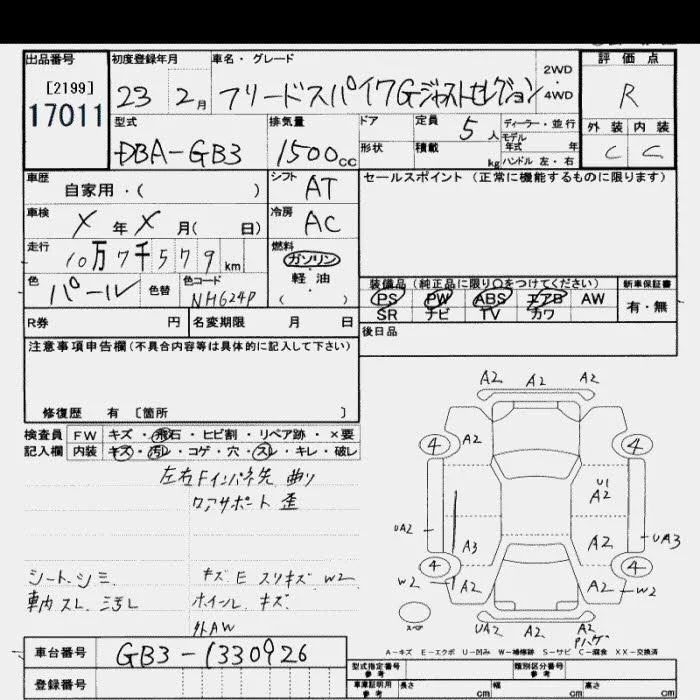 出品番号
[2199]
17011
初度登録年月
23 2月
車名・グレード
フリードスパイクGジャストセレクション
2WD
・
4WD
評価点
R
外装 内装
C C
型式
DBA-GB3
排気量
1500cc
ドア
定員 5人
ディーラー・並行
モデル
年式 年
形状
積載 kg
ハンドル 左・右
車歴
自家用・( )
シフト AT
セールスポイント (正常に機能するものに限ります)
車検
X年X月( 日)
冷房 AC
走行
10万7千579km
燃料
ガソリン
・
軽油
・
( )
色
パール
色替
色コード
NH624P
装備品 (純正品に限り○をつけてください)
PS PW ABS エアB AW
SR ナビ TV カワ
新車保証書
有・無
R券 円
名変期限 月 日
後日品
注意事項申告欄(不具合内容等は具体的に記入して下さい)
修復歴 有 〔箇所 〕
検査員
記入欄
FW キズ・飛石・ヒビ割・リペア跡・×要
内装 キズ・汚レ・コゲ・穴・スレ・キレ・破レ
左右Fインパネ先 曲り
ロアサポート 歪
シートシミ
車内スレ.汚レ
キズ E スリキズ W2
ホイール キズ
外AW
A2 A2 A2
4 A2 4
U1
A2
UA2 A3 A2 UA3
4 4
W2 A2 A2 W2
スペア
UA2 A2 A2
Pハゲ
A-キズ E-エクボ U-凹み W-補修跡 S-サビ C-腐食 XX-交換済
車台番号
GB3-1330926
登録番号
型式指定番号
参考
類別区分番号
参考
車庫証明用
参考
長さ cm
幅 cm
高さ cm